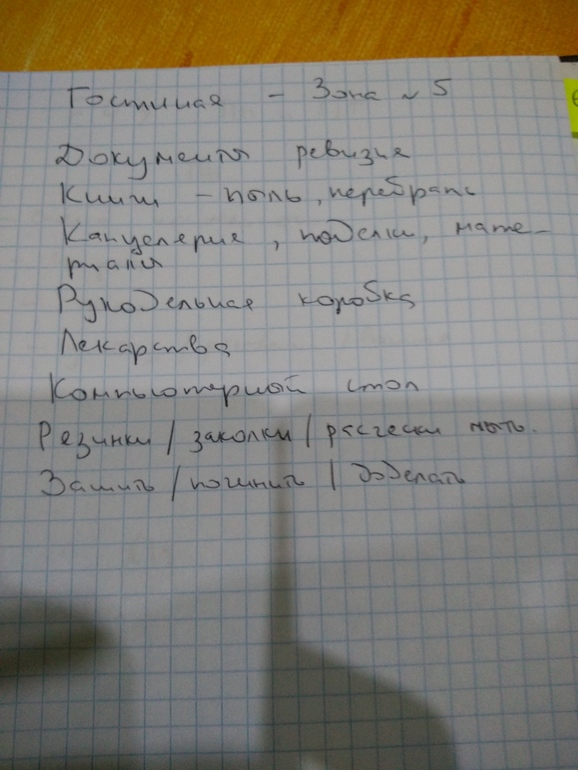 Гостиная - Зона № 5
Документы ревизия
Книги - пыль, перебрать
Канцелярия, поделки, мате-
риалы
Рукодельная коробка
Лекарства
Компьютерный стол
Резинки / заколки / расчески мыть.
Зашить / починить / доделать